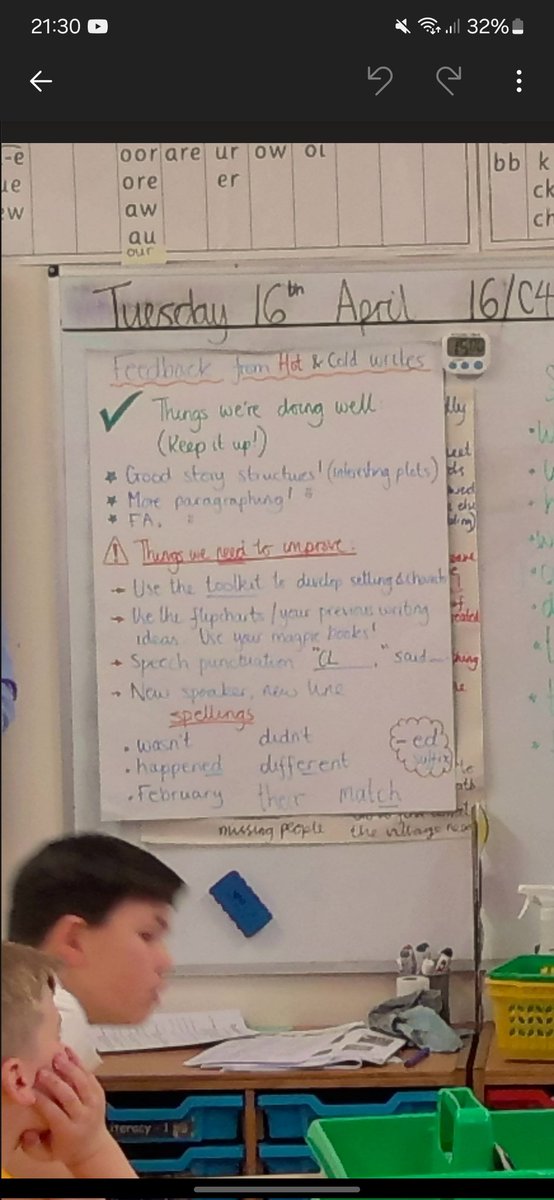 21:30
32%
-e
ue
ew
oor are ur ow oi
ore er
aw
au
our
bb k
ck
ch
Tuesday 16th April 16/04
Feedback from Hot & Cold writes
Things we're doing well
(Keep it up!)
Good story structures! (interesting plots)
More paragraphing! "
FA. "
Things we need to improve:
→ Use the toolkit to develop setting & charact
→ Use the flipcharts / your previous writing
ideas. Use your magpie books!
→ Speech punctuation "CL ," said
→ New speaker, new line
spellings
• wasn't didn't
• happened different
-ed
suffix
• February their match
missing people
the village
iteracy - 1